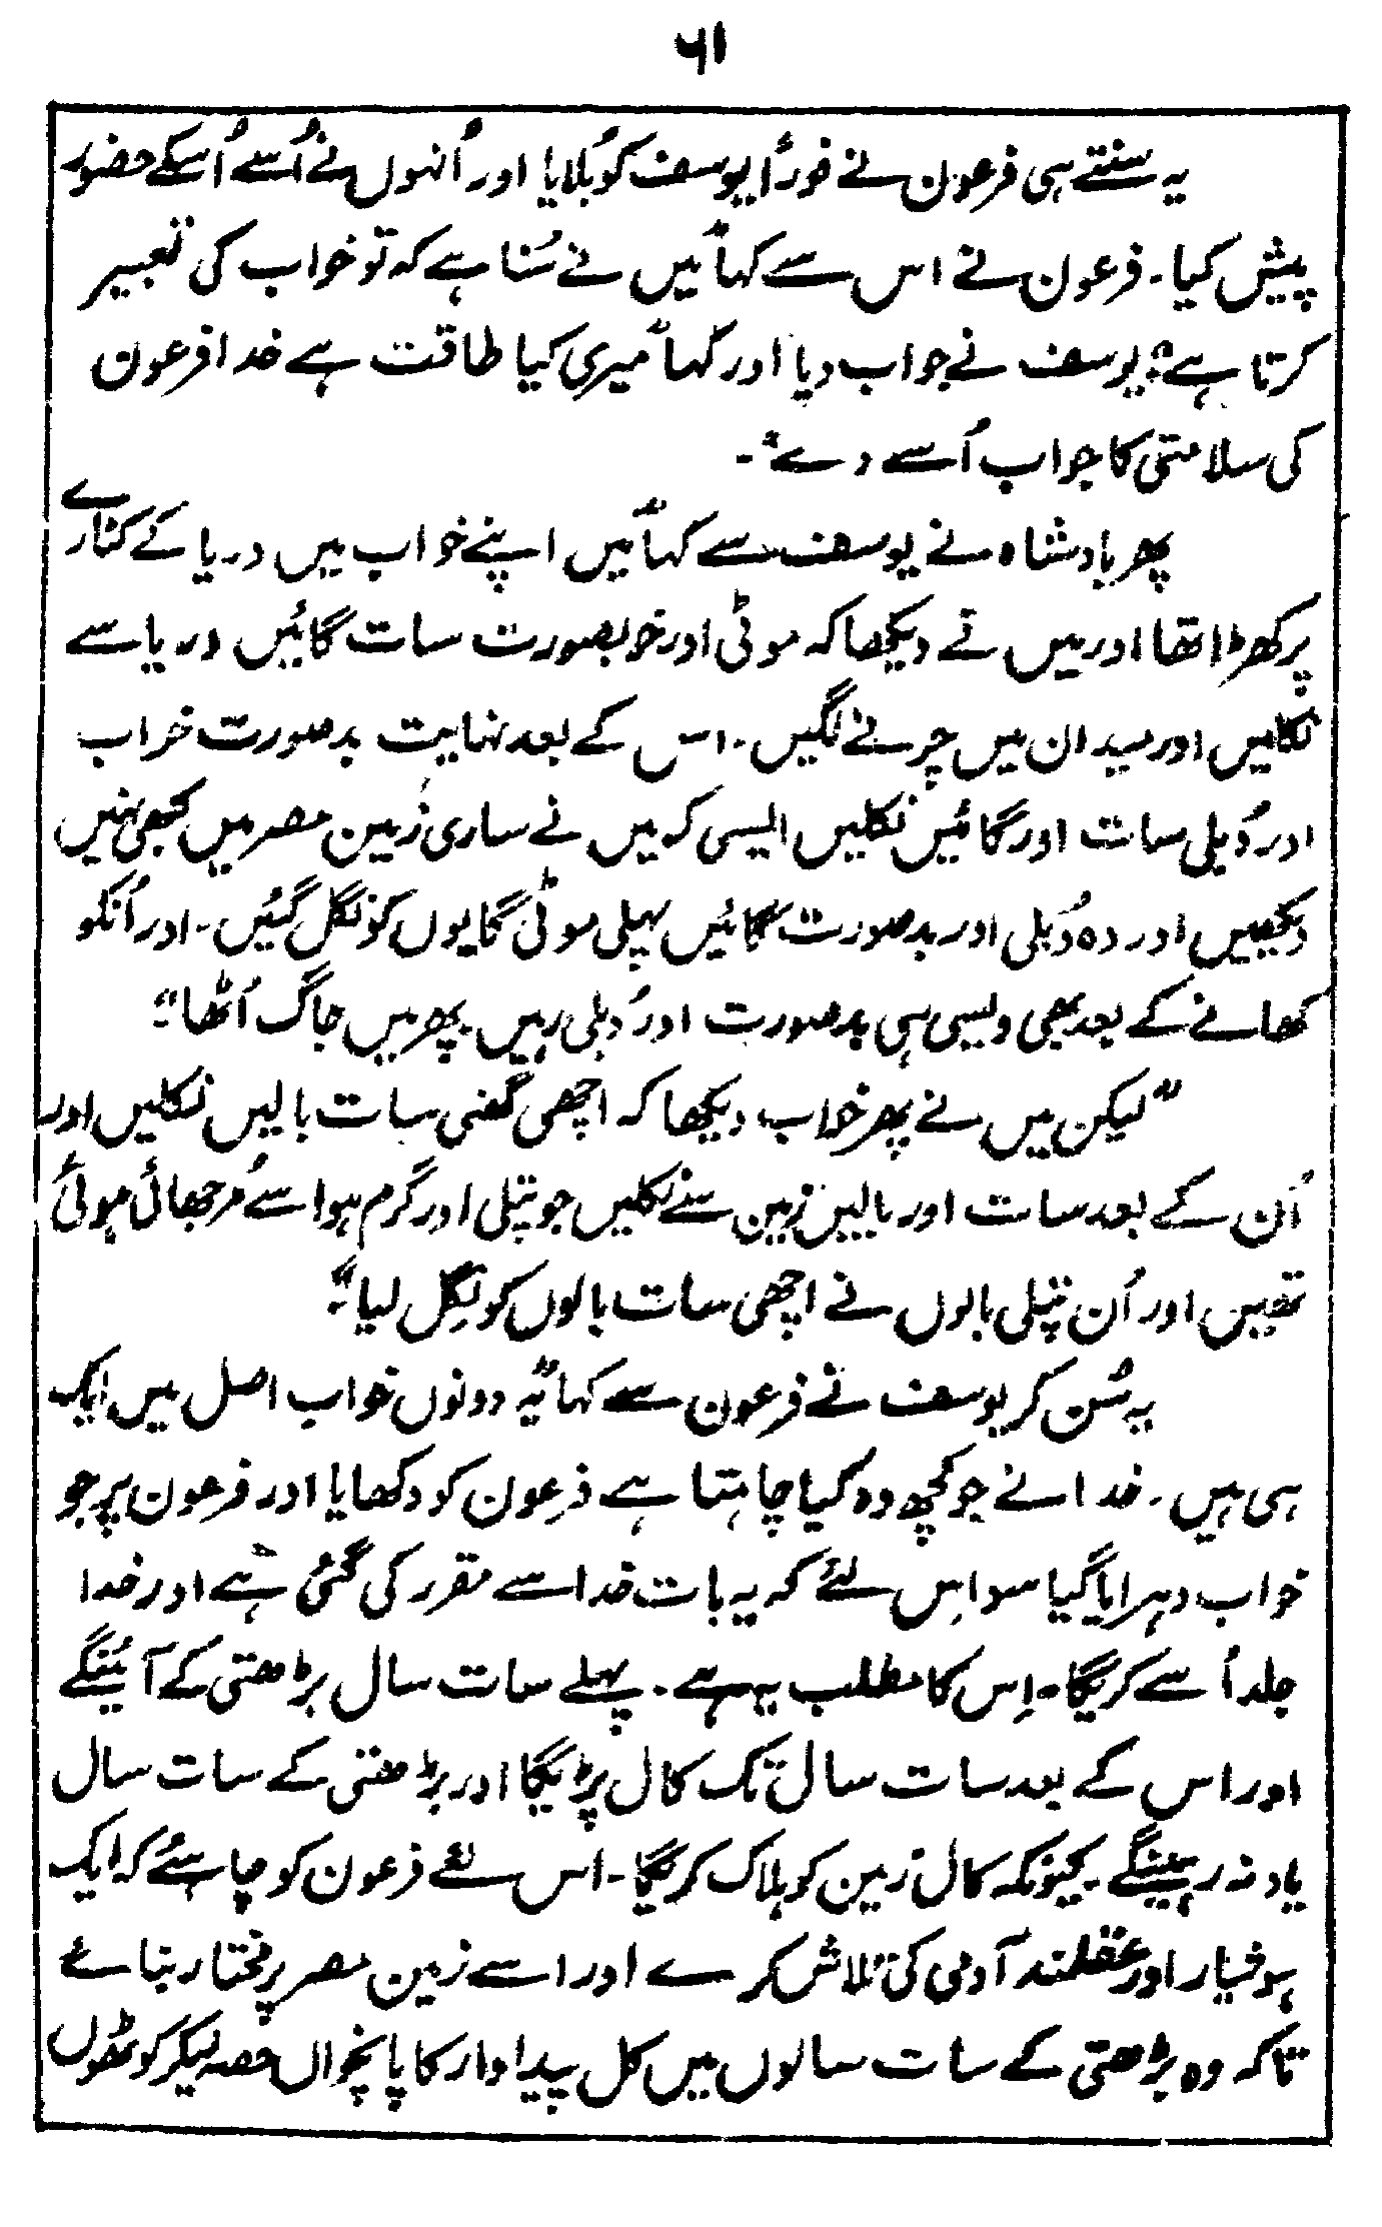 ۶۱
یہ سنتے ہی فرعون نے فوراً یوسف کو بُلایا اور اُنہوں نے اُسے اُسکے حضور
پیش کیا۔ فرعون نے اس سے کہا "میں نے سُنا ہے کہ تو خواب کی تعبیر
کرتا ہے"؟ یوسف نے جواب دیا اور کہا "میری کیا طاقت ہے خدا فرعون
کی سلامتی کا جواب اُسے دے"۔
پھر بادشاہ نے یوسف سے کہا "میں اپنے خواب میں دریا کے کنارے
پر کھڑا تھا اور میں نے دیکھا کہ موٹی اور خوبصورت سات گائیں دریا سے
نکلیں اور میدان میں چرنے لگیں۔ اس کے بعد نہایت بدصورت خراب
اور دُبلی سات اور گائیں نکلیں ایسی کہ میں نے ساری زمین مصر میں کبھی نہیں
دیکھیں اور وہ دُبلی اور بدصورت گائیں پہلی موٹی گایوں کو نگل گئیں۔ اور اُنکو
کھانے کے بعد بھی ویسی ہی بدصورت اور دُبلی رہیں۔ پھر میں جاگ اُٹھا"۔
"لیکن میں نے پھر خواب دیکھا کہ اچھی گھنی سات بالیں نکلیں اور
اُن کے بعد سات اور بالیں زمین سے نکلیں جو پتلی اور گرم ہوا سے مُرجھائی ہوئی
تھیں اور اُن پتلی بالوں نے اچھی سات بالوں کو نِگل لیا"۔
یہ سُن کر یوسف نے فرعون سے کہا "یہ دونوں خواب اصل میں ایک
ہی ہیں۔ خدا نے جو کچھ وہ کیا چاہتا ہے فرعون کو دکھایا اور فرعون پر جو
خواب دہرایا گیا سو اِس لئے کہ یہ بات خدا سے مقرر کی گئی ہے اور خدا
جلد اُسے کریگا۔ اِس کا مطلب یہ ہے۔ پہلے سات سال بڑھتی کے آئینگے
اور اس کے بعد سات سال تک کال پڑیگا اور بڑھتی کے سات سال
یاد نہ رہینگے۔ کیونکہ کال زمین کو ہلاک کریگا۔ اس لئے فرعون کو چاہئے کہ ایک
ہوشیار اور عقلمند آدمی کی تلاش کرے اور اسے زمین مصر پر مختار بنائے
تاکہ وہ بڑھتی کے سات سالوں میں کل پیداوار کا پانچواں حصہ لیکر کوٹھوں